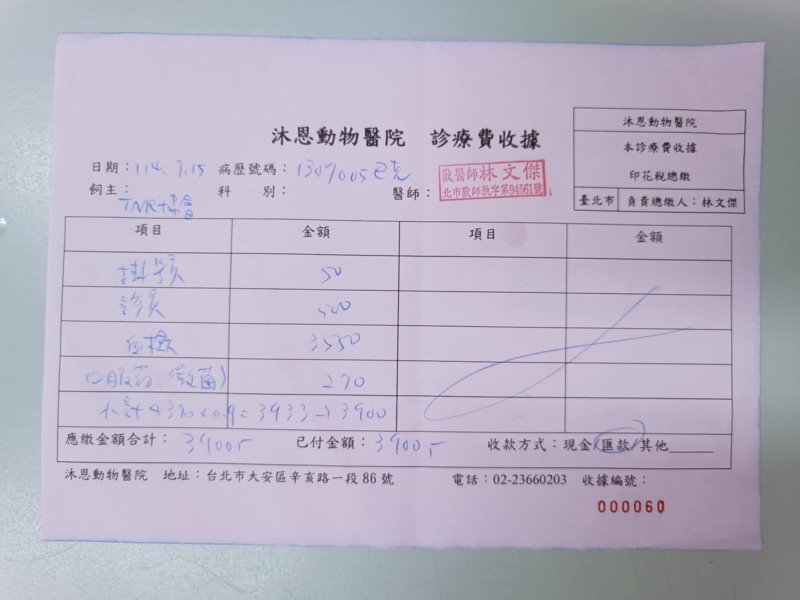 沐恩動物醫院 診療費收據
沐恩動物醫院
本診療費收據
印花稅總繳
臺北市 負責總繳人：林文傑
日期：114.7.15 病歷號碼：1307005巴克
飼主：TNR協會 科 別： 醫師：
獸醫師林文傑
北市獸師執字第94561號
項目 金額 項目 金額
掛號 50
診費 500
血檢 3550
口服藥(黴菌) 270
小計4370x0.9=3933→3900
應繳金額合計：3900- 已付金額：3900- 收款方式：現金/匯款/其他
沐恩動物醫院 地址：台北市大安區辛亥路一段86號 電話：02-23660203 收據編號：
000060